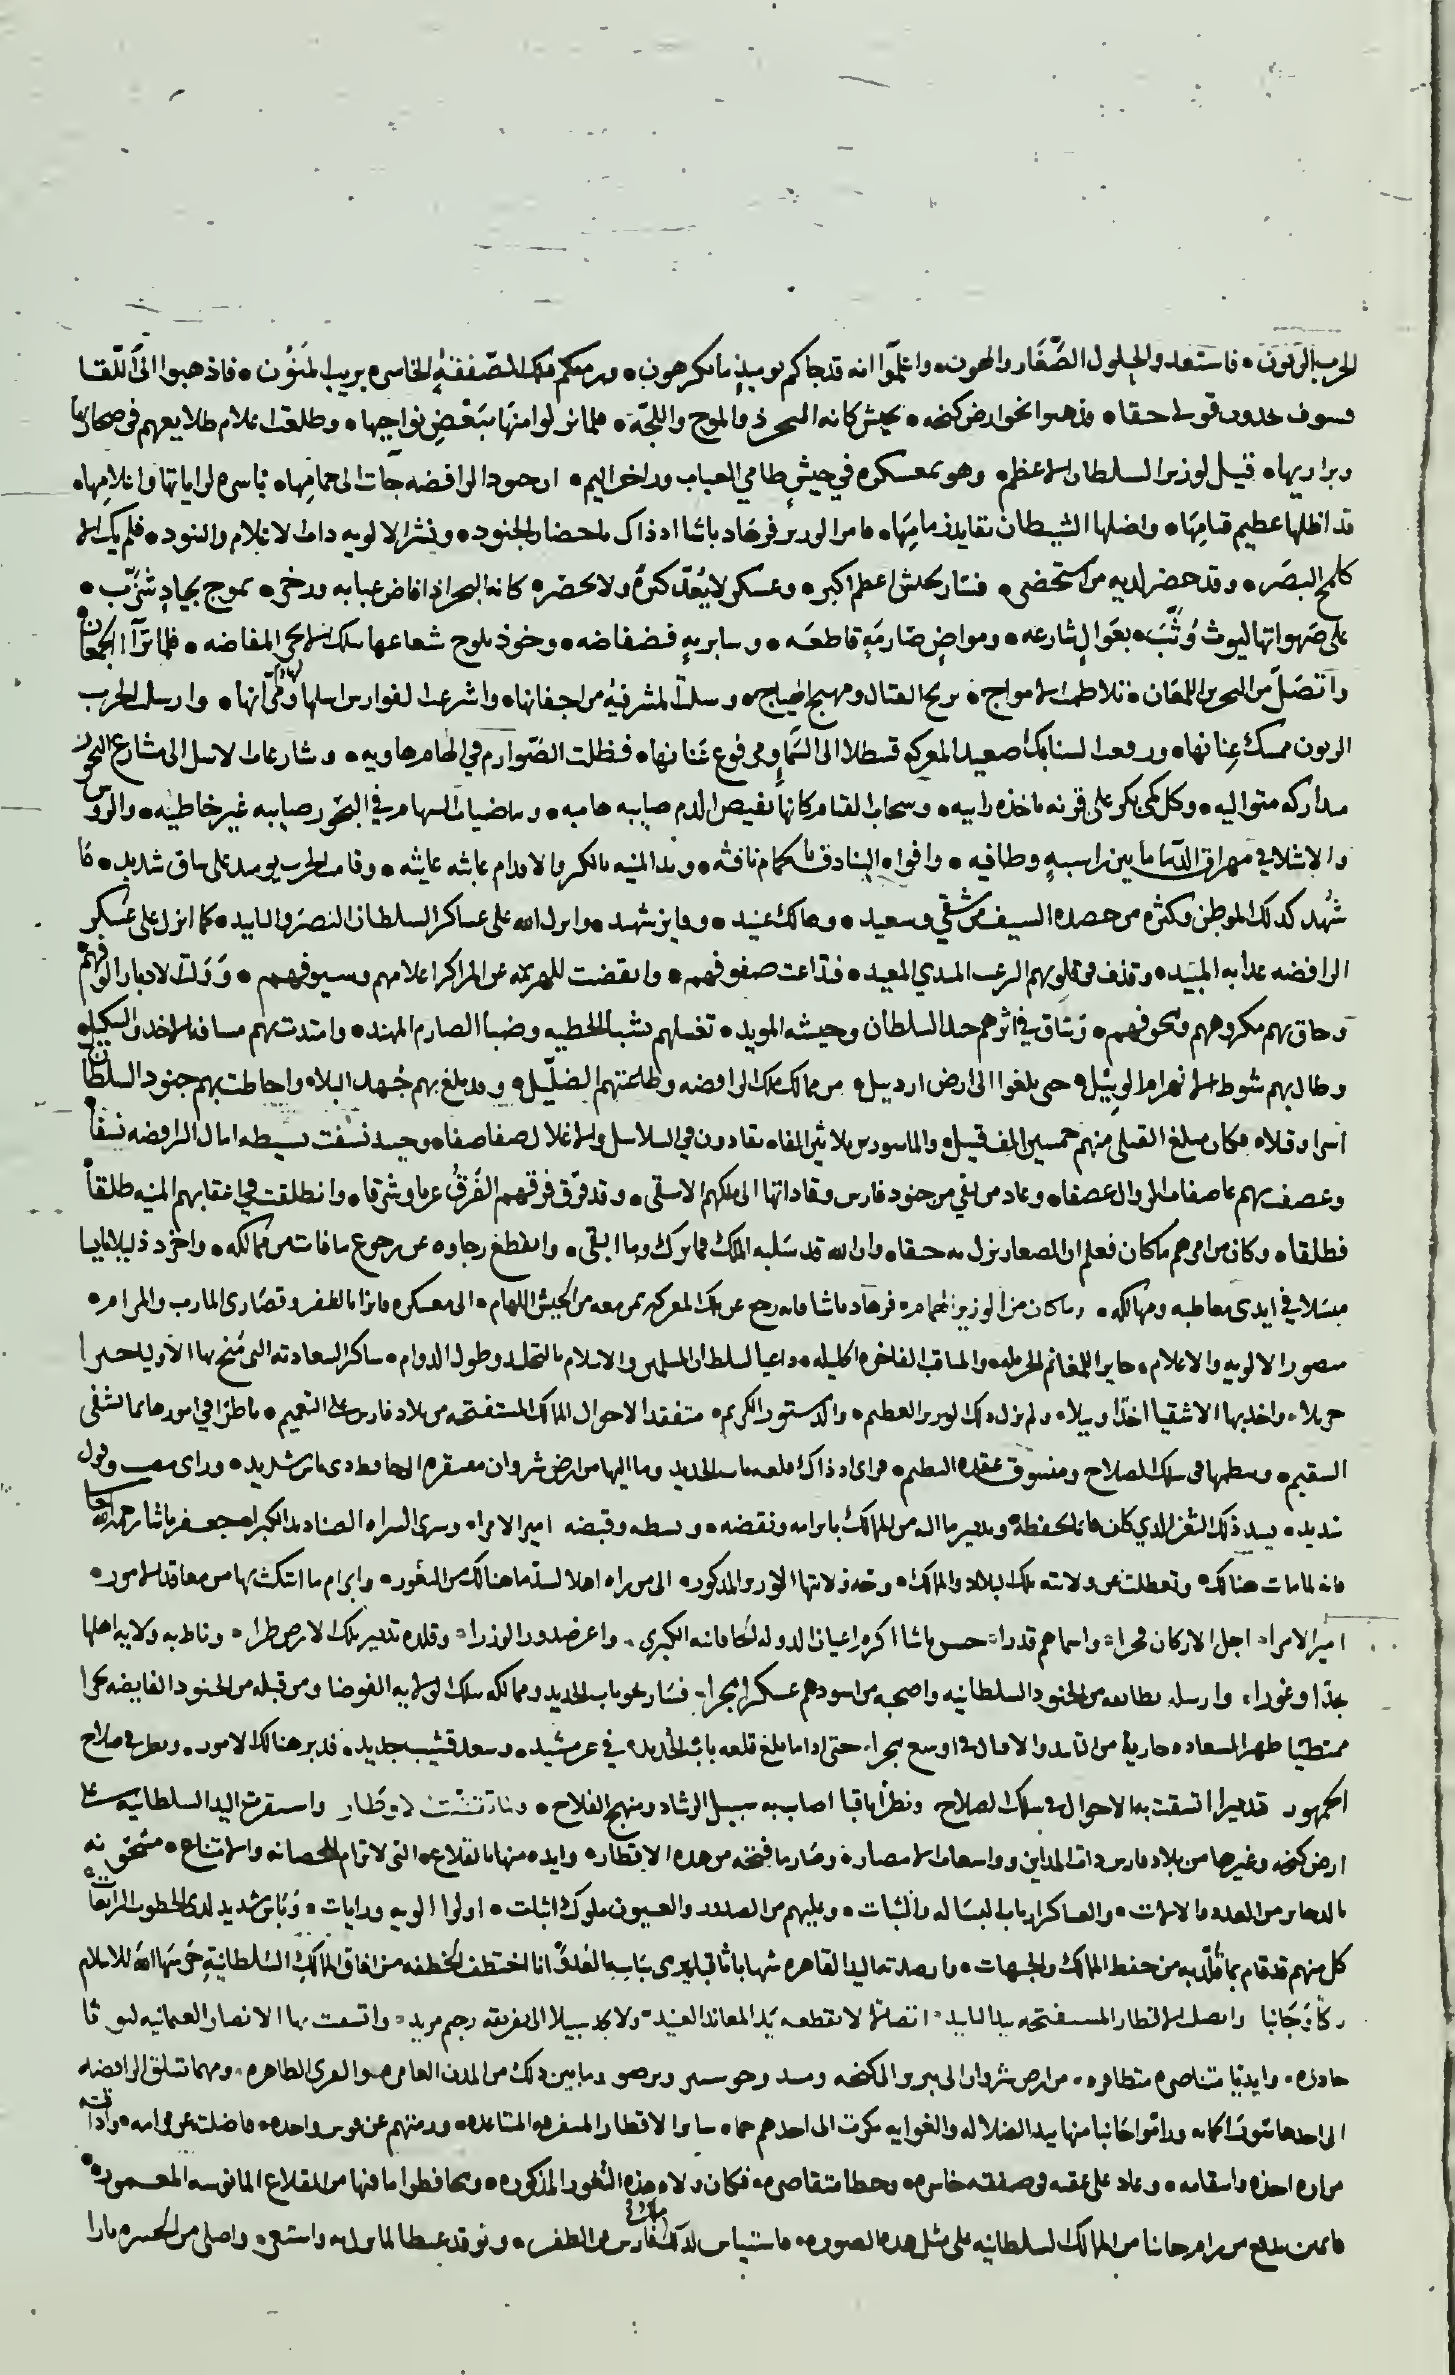 الحرب الزبون ٥ فاستعدوا لحلول الصَّغَار والهون ٥ واعلموا انه قد جاكم يوميذٍ ما تكرهون ٥ ورمتكم تلك الصفقة الخاسره بريب المنون ٥ فاذهبوا الى اللقا
فسوف تجدون قولي حقا ٥ فذهبوا نحو ارض كنجه ٥ بجيش كانه البحر ذو الموج واللجّة ٥ فلما نزلوا منها ببعض نواحيها ٥ وطلقت اعلام طلايعهم في صحاريها
وبراريها ٥ قيل لوزير السلطان الاعظم ٥ وهو بمعسكره في جيش طامي العباب وزاخر اليم ٥ ان جنود الرافضه جات الى حمامها ٥ ناشره لراياتها واعلامها ٥
قد اظلها عظيم قتامها ٥ واضلها الشيطان بقايد زمامها ٥ فامر الوزير فرهاد باشا اذ ذاك باحضار الجنود ٥ ونشر الالويه ذات الاعلام والبنود ٥ فلم يك الا
كلمح البصر ٥ وقد حضر لديه من استحضى ٥ فسار بجيش اعظم اكبر ٥ وعسكر لا يُعدّ كثرةً ولا يحصر ٥ كانه البحر اذا فاض عبابه وزخر ٥ يموج بجيادٍ شُزَّب ٥
على صهواتها ليوث وُثَّب ٥ بعوالٍ شارعه ٥ ومواضٍ صارمةٍ قاطعه ٥ وسابريةٍ فضفاضه ٥ وخوذ يلوح شعاعها تلك الاضحى المفاضه ٥ فلما تراآ الجمعان ٥
واتصل من البحرين الملتقان ٥ تلاطمت الامواج ٥ بريح القتال ومهيج الهياج ٥ وسلت المشرفية من اجفانها ٥ واشرعت الفوارس اسلها ومرّانها ٥ وارسلت الحرب
الزبون ممسك عنانها ٥ ورفعت السنابك صعيد المعركه قسطلا الى السماء ومرفوع عنانها ٥ فظلت الصوارم في الهام هاويه ٥ وشارعات الاسل الى مشارع النحور
متداركه متواليه ٥ وكل كمي يكر على قرنه باخذه رابيه ٥ وسحاب القتام كانها بفيض الدم صابيه هاميه ٥ وماضيات السهام في النحور صايبه غير خاطيه ٥ والروس
والاشلا في مهراق الدما ما بين راسبهٍ وطافيه ٥ وافواه البنادق بالحمام نافثه ٥ ويد المنيه بالكر والاقدام عابثه عايثه ٥ وقامت الحرب يوميذ على ساق شديد ٥ ما
شهد كذلك الموطن وكثره من حصده السيف من شقي وسعيد ٥ وهالك عنيد ٥ وفايز شهيد ٥ وانزل الله على عساكر السلطان النصر والتاييد ٥ كما انزل على عسكر
الرافضه عذابه المبيد ٥ وقذف في قلوبهم الرعب المبدي المعيد ٥ فتداعت صفوفهم ٥ وانقضت للهزيمه عن المراكز اعلامهم وسيوفهم ٥ وولت الادبار الوفهم ٥
وحاق بهم مكروههم ومخوفهم ٥ وساق في اثرهم جند السلطان وجيشه المويد ٥ تغسلهم بشبا الخطيه وضبا الصارم المهند ٥ وامتدت بهم مسافة الاخذ والتنكيل ٥
وطال بهم شوط الانهزام الوبيل ٥ حتى بلغوا الى ارض اردبيل ٥ من ممالك ملك الرافضه وطاغيتهم الضليل ٥ وقد بلغ بهم جهد البلا ٥ واحاطت بهم جنود السلطان
اسرا وقتلا ٥ فكان مبلغ القتلى منهم خمسين الف قتيل ٥ والماسورين ثلاثين الفا ٥ يقادون في السلاسل والاغلال صفا صفا ٥ وحينيذ نسفت بسيطه امال الرافضه نسفا ٥
وعصفت بهم عاصفات الزوال عصفا ٥ وعاد من بقي من جنود فارس وقاداتها الى ملكهم الاشقى ٥ وقد فرّق فرقهم الفَرَقُ غربا وشرقا ٥ وانطلقت في اعقابهم المنيه طلقا ٥
فطلقا ٥ وكان من امرهم ما كان فعلم ان الصغار نزل به حقا ٥ وان الله قد سلبه الملك فما ترك وما ابقى ٥ وانقطع رجاوه عن رجوع ما فات من ممالكه ٥ واخر ذليلا خايبا
مبتلا في ايدي معاطبه ومهالكه ٥ وما كان من الوزير الهمام ٥ فرهاد باشا فانه رجع عن تلك المعركه بمن معه من الجيش اللهام ٥ الى معسكره فايزا بالظفر وقصارى المارب والمرام ٥
منصور الالويه والاعلام ٥ حايزا للمغانم الجزيله ٥ والمناقب الفاخره الجليله ٥ داعيا لسلطان المسلمين والاسلام بالتخليد وطول الدوام ٥ شاكرا لسعادته التي مُنح بها الاوليا خيرا
جزيلا ٥ واخذ بها الاشقيا اخذا وبيلا ٥ ولم يزل ذلك الوزير العظيم ٥ والدستور الكريم ٥ متفقدا لاحوال الممالك المستفتحه من بلاد فارس على التعميم ٥ ناظرا في امورها بما يشفي
السقيم ٥ وينظمها في سلك الصلاح ومنسوق عقده النظيم ٥ فراى اذ ذاك قلعه باب الحديد وما اليها من ارض شروان مفتقره الى حافظ ذي باس شديد ٥ وراي مصيب وقول
سديد ٥ يسد ذلك الثغر الذي كان قايما بحفظه ٥ وتدبير ما اليه من الممالك بابرامه ونقضه ٥ وبسطه وقبضه امير الامرا ٥ وسري السراه الصناديد الكبرا ٥ جعفر باشا رحمه الله تعالى
فانه لما مات هنالك ٥ وتعطلت عن ولايته تلك البلاد والممالك ٥ وجه ولايتها الوزير المذكور ٥ الى من راه اهلا لسد ما هنالك من الثغور ٥ وابرام ما انتكث بها من معاقد الامور ٥
امير الامرا ٥ اجل الاركان فخرا ٥ واسماهم قدرا ٥ حسن باشا اكره اعيان الدوله الخاقانيه الكبرى ٥ واعرض صدور الوزرا ٥ وقلده تدبير تلك الارض طرا ٥ وناط به ولايه اهلها
نجدا وغورا ٥ وارسله بطايفه من الجنود السلطانيه واصحبه من اسودهم عسكرا مجرا ٥ فسار نحو باب الحديد وممالكه تلك الولايه الفوضا ومن قبله من الجنود الفايضه بحرا
ممتطيا ظهر السعاده جارية من التاييد والاقبال في اوسع مجرا ٥ حتى اذا ما بلغ قلعه باب الحديد ٥ في عز مشيد ٥ وسعد قشيب جديد ٥ فدبر هنالك الامور ٥ ونظر في صلاح
الجمهور تدبيرا اتسقت به الاحوال في سلك الصلاح ونظرا ثاقبا اصاب به سبيل الرشاد ومنهج الفلاح ٥ ونادتشتت الاوطار واستقرت اليد السلطانيه على
ارض كنجه وغيرها من بلاد فارس ذات المداين وواسعات الامصار ٥ وصار ما فتحه من هذه الاقطار ٥ وايده منها بالقلاع التي لا ترام للحصانه والامتناع ٥ مشحونه
بالذخاير من العدد والالات ٥ والعساكر ارباب البساله والثبات ٥ ويليهم من الصدور والعيون ملوك اثبات ٥ اولوا الويه ورايات ٥ وباس شديد لدى الخطوب الرايعات
كل منهم قد قام بما قُلّد به من حفظ الممالك والجهات ٥ وارصدته اليد القاهره شهابا ثاقبا يرمى به العدو انا اختطف الخطفه من افاق الممالك السلطانيةِ حرسها الله للاسلام
ركنًا وجَانبا واتصل الاقطار المستفتحه بيد التاييد ٥ اتصالًا لا تقطعه يَد المعاند العنيد ٥ ولا يجد سبيلا الى تفريقه رجيم مريد ٥ واتسعت بها الانصار العثمانيه
حاذره ٥ وايديًا متناصره متظافره ٥ من ارض شروان الى تبريز الى كنجه وما بين ذلك من المدن العامره والقرى الظاهره ٥ ومهما تسلق الرافضه
الى احدها شوت اكاته وراموا جانبا منها بيد الضلاله والغوايه كرت الى احدهم حماه ساير الاقطار المتفرقه المتباعده ٥ ورمتهم عن قوس واحده ٥ فاضلته عن مرامه ٥ واذاقته
مراره اخذه وانتقامه ٥ وعاد على عقبه في صفقته خاسره ٥ وخطا متقاصره ٥ فكان ولاه هذه الثغور المذكوره ٥ ومحافظوا ما فيها من القلاع المانوسه المعموره ٥
قايمين بدفع من رام جانبا من الممالك السلطانيه على مثل هذه الصوره ٥ فاستياس لذلك ملك فارس من الظفر ٥ وتوقد غيظا لما نزل به واستعر ٥ واصلي من الحسره نارا